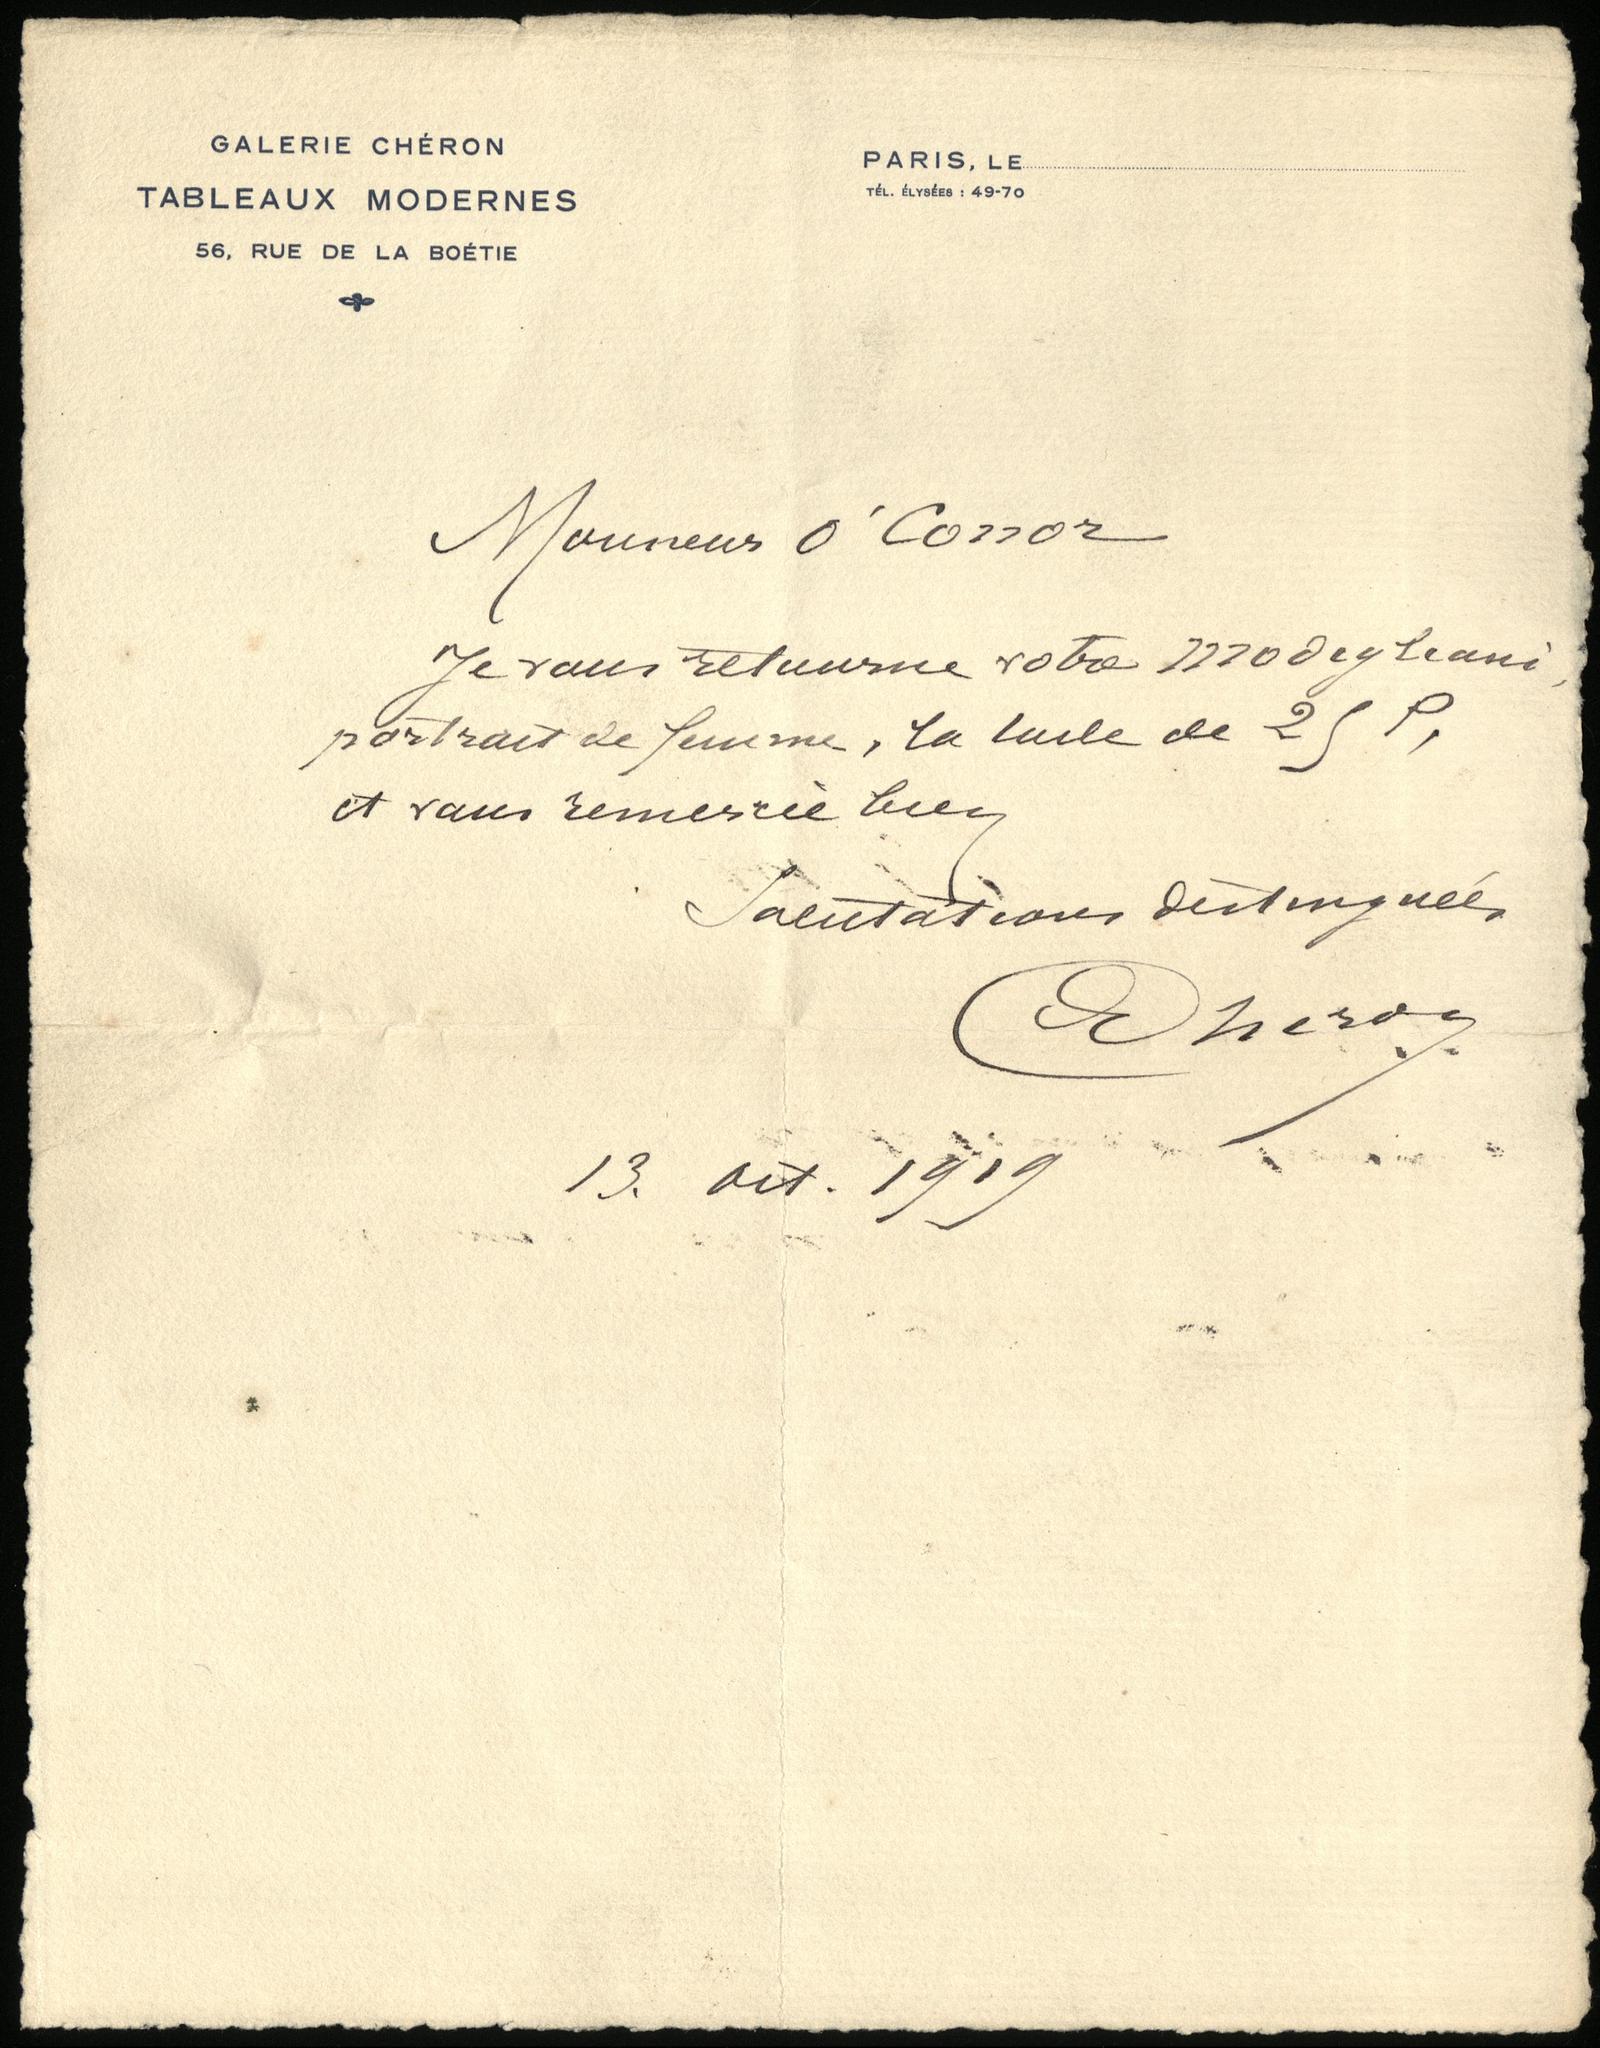 GALERIE CHÉRON
TABLEAUX MODERNES
56, RUE DE LA BOÉTIE
PARIS, LE
TÉL. ÉLYSÉES : 49-70
Monsieur O'Connor
Je vous retourne votre Modigliani,
portrait de femme, la toile de 25 P,
et vous remercie bien
Salutations distinguées
Cheron
13. oct. 1919